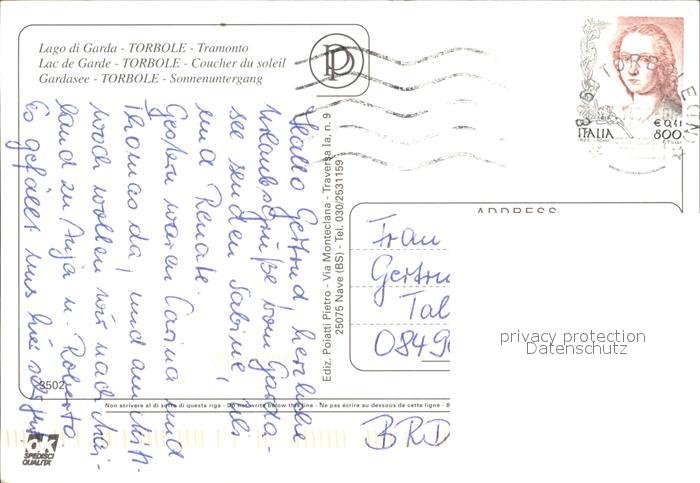 Lago di Garda - TORBOLE - Tramonto
Lac de Garde - TORBOLE - Coucher du soleil
Gardasee - TORBOLE - Sonnenuntergang
P
€ 0,41
ITALIA 800
Hallo Gertrud, herzliche
Urlaubsgrüße vom Garda-
see senden Sabine, Uli
und Renate.
Gestern waren Carina und
Thomas da, und am Mitt-
woch wollen wir nach Mai-
land zu Anja u. Roberto
Es gefällt uns hier sehr gut
Ediz. Poiatti Pietro - Via Monteclana - Traversa Ia, n. 9
25075 Nave (BS) - Tel. 030/2531159
ADDRESS
Frau
Gertru
Tal
0849
BRD
privacy protection
Datenschutz
3502
Non scrivere al di sotto di questa riga - Do not write below this line - Ne pas écrire au dessous de cette ligne - B
ok
SPEDISCI
QUALITÀ